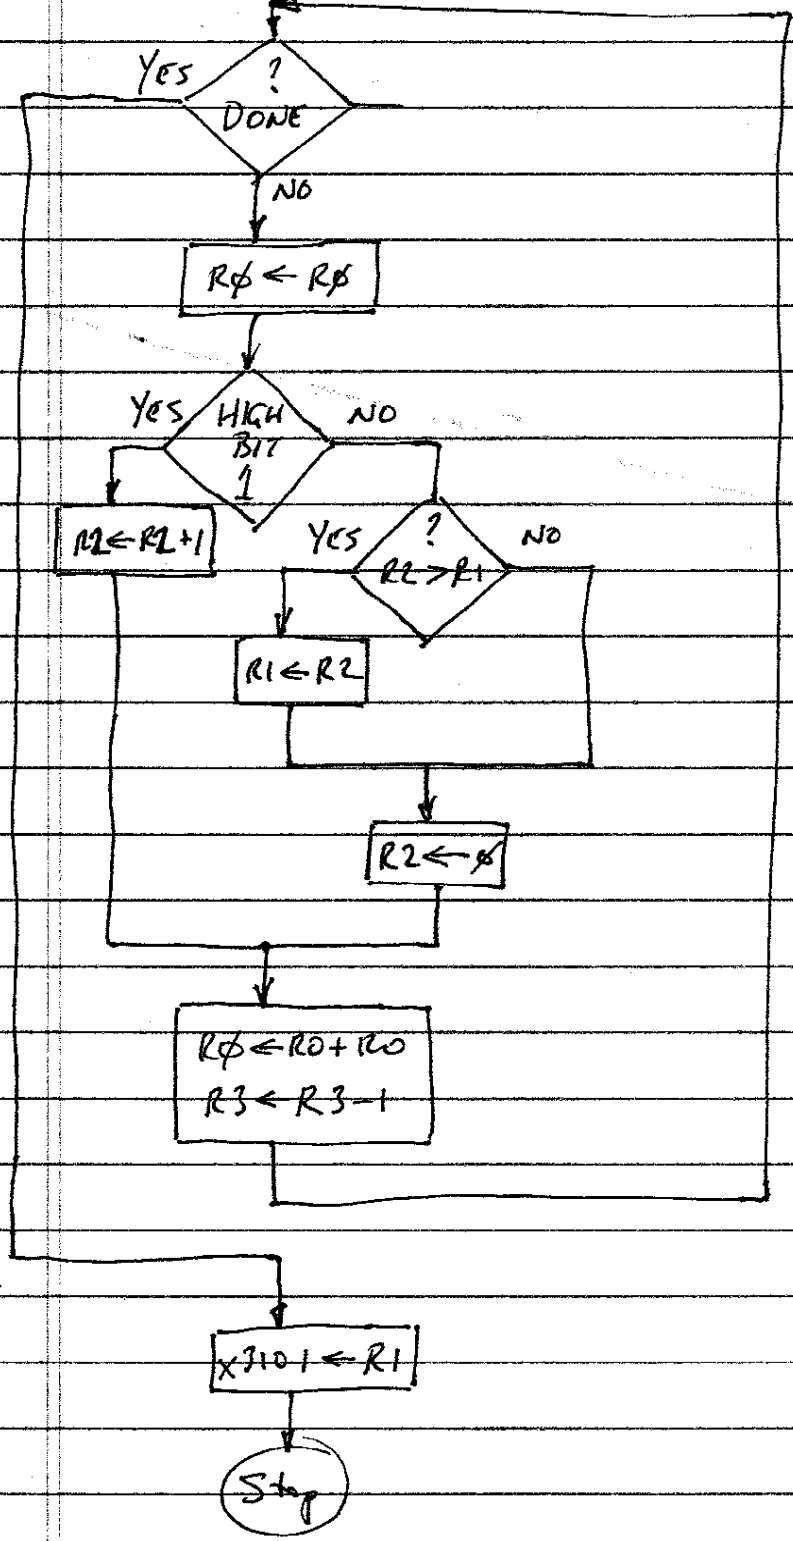 YES
?
DONE
NO
RØ ← RØ
YES
HIGH
BIT
1
NO
R2 ← R2+1
YES
?
R2 > R1
NO
R1 ← R2
R2 ← Ø
RØ ← R0 + R0
R3 ← R3 - 1
x3101 ← R1
Stop